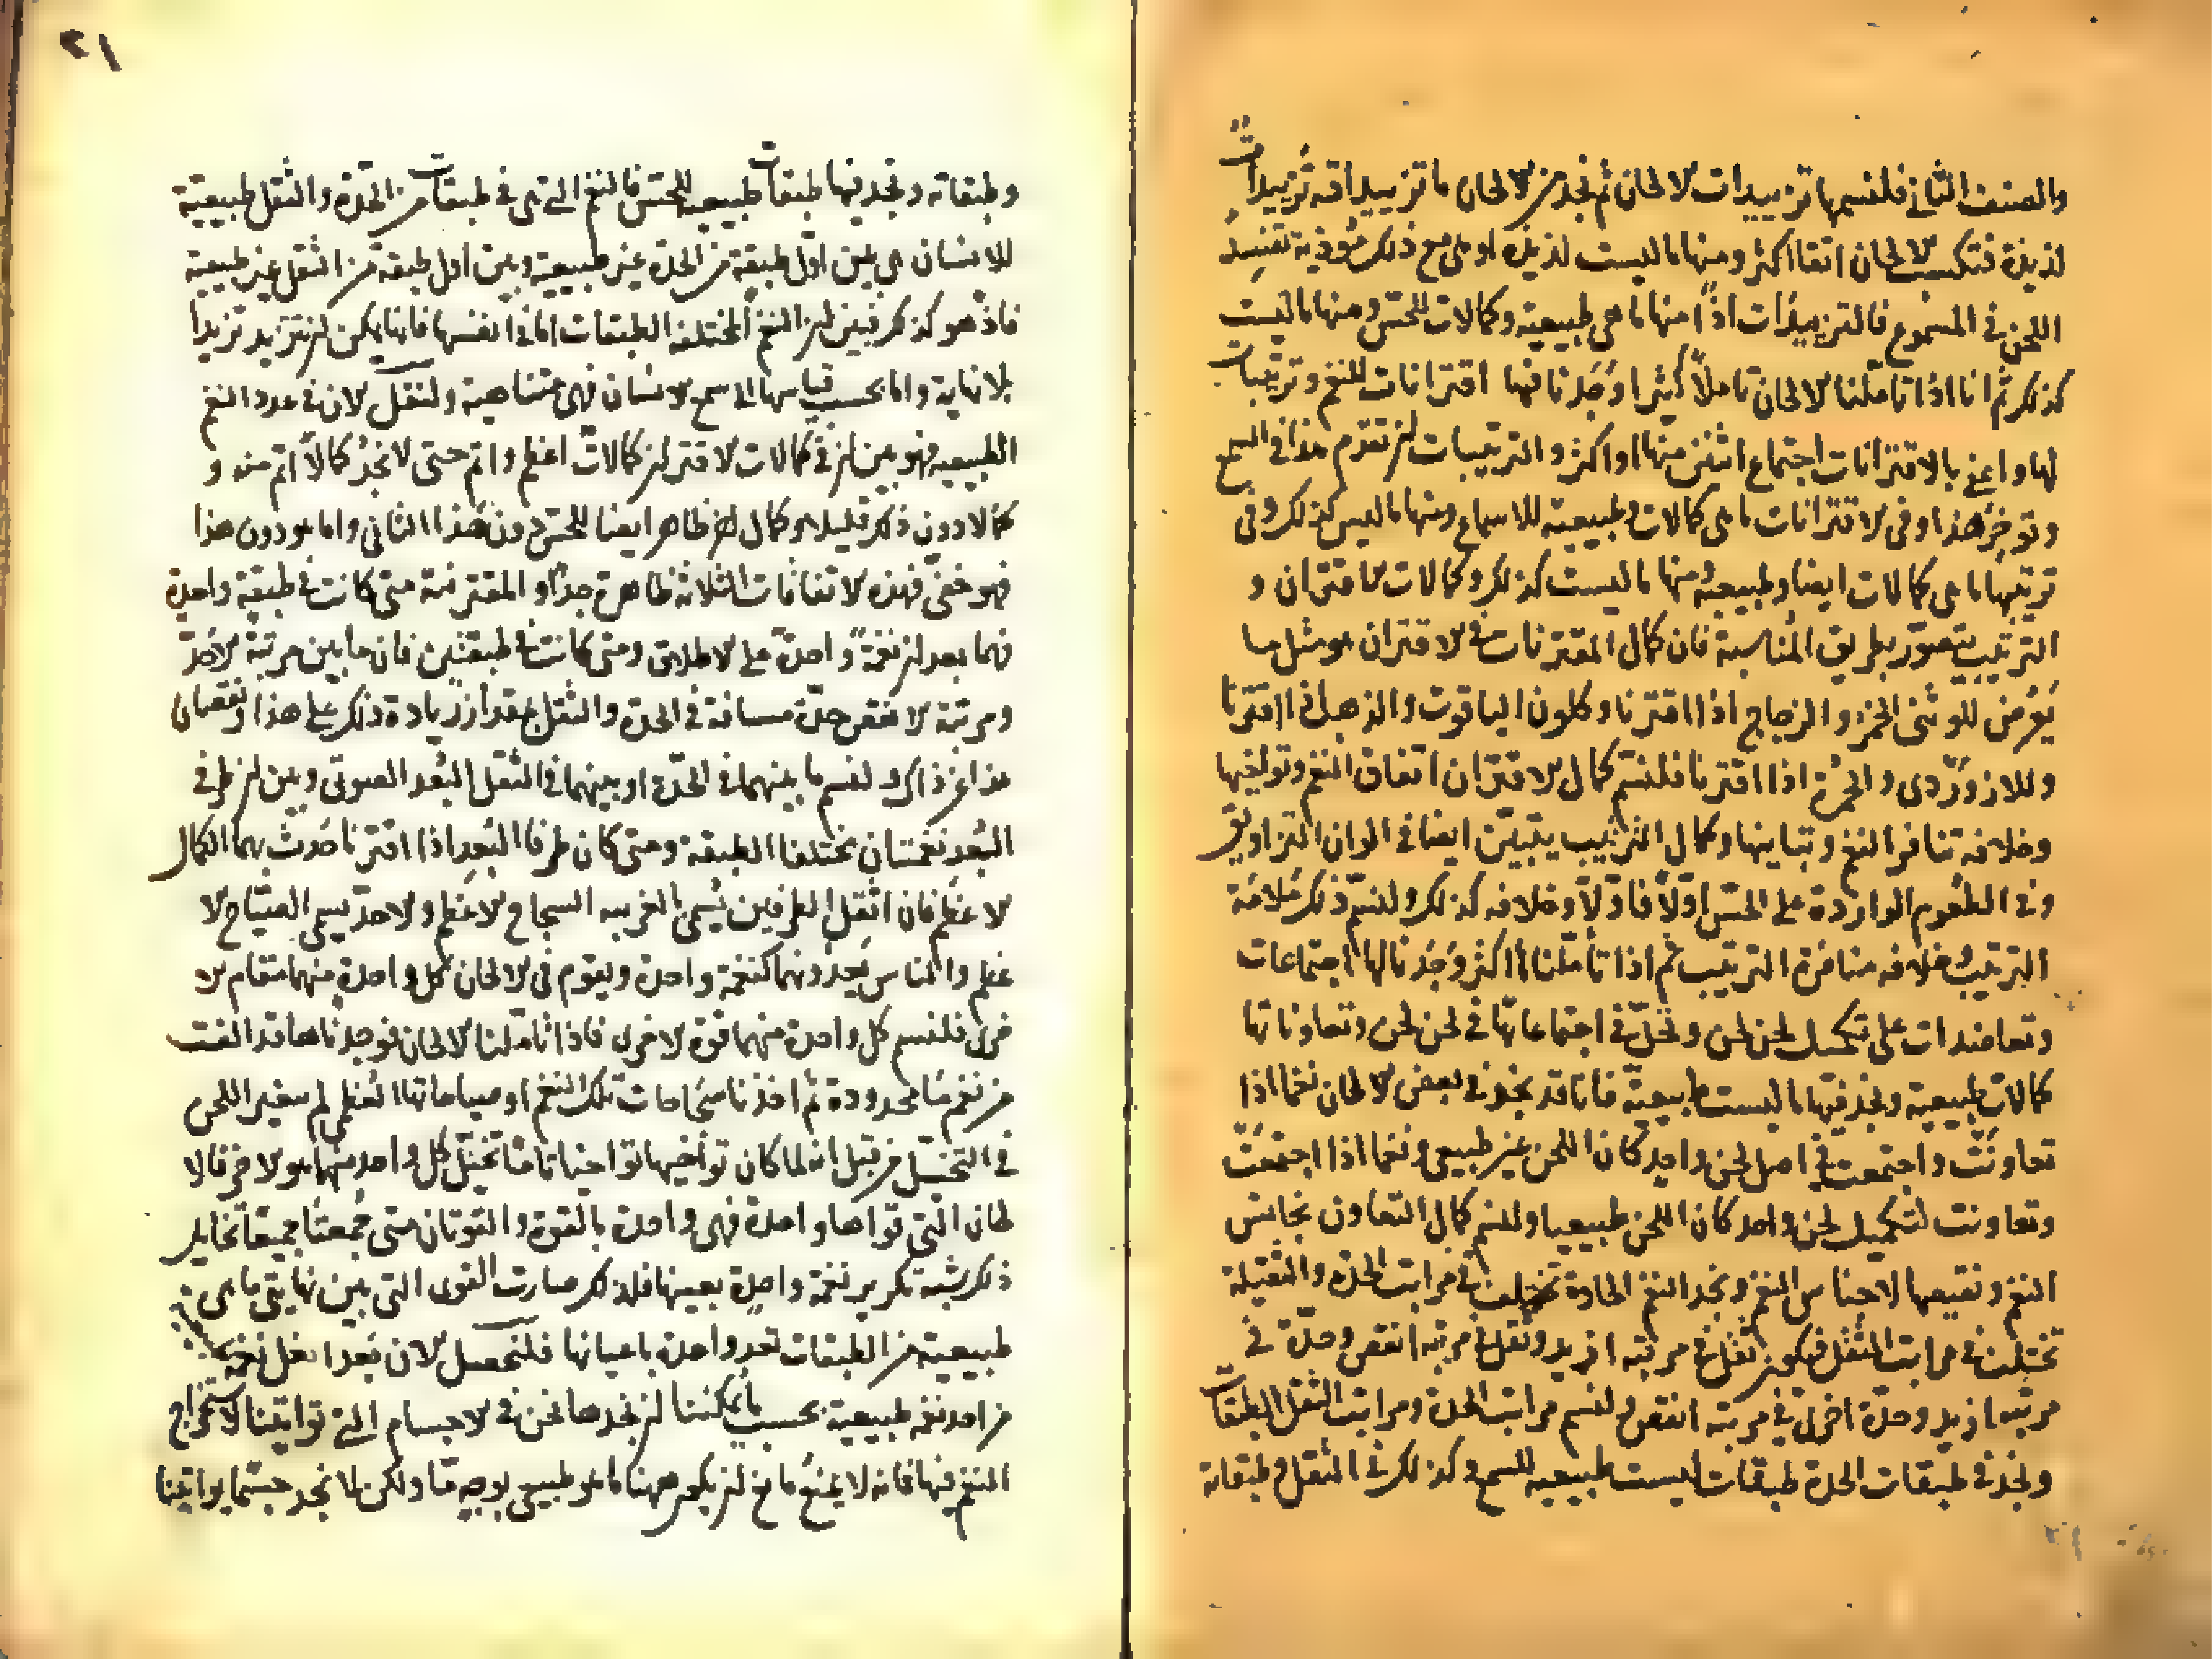 والصنف الثاني فلنسمها تزييدات الالحان ثم نجد من الالحان ما تزييداته تزييدات
لذيذة فتكسب الالحان انقا اكثر ومنها ما ليست لذيذة او هي مع ذلك مؤذية تفسد
اللحن في المسموع فالتزييدات اذًا منها ما هي طبيعية وكمالات للحس ومنها ما ليست
كذلك ثم انا اذا تاملنا الالحان تاملاً كثيرا وجدنا فيها اقترانات للنغم وترتيبات
لها واعني بالاقترانات اجتماع اثنين منها او اكثر والترتيبات ان تقدم هذا في السمع
وتوخر هذا وفي الاقترانات ما هي كمالات وطبيعية للاسماع ومنها ما ليس كذلك وفي
ترتيبها ما هي كمالات ايضا وطبيعية ومنها ما ليست كذلك وكمالات الاقتران و
الترتيب يتصور بطريق المناسبة فان كمال المقترنات في الاقتران هو مثل ما
يعرض للوني الخمر والزجاج اذا اقترنا وكلون الياقوت والذهب اذا اقترنا
وللازوردى والحمرة اذا اقترنا فلنسم كمال الاقتران اتفاق النغم وتواخيها
وخلافه تنافر النغم وتباينها وكمال الترتيب يتبين ايضا في الوان التزاويق
وفي الطعوم الواردة على الحس اولاً فاولاً وخلافه كذلك ولنسم ذلك ملامة
الترتيب وخلافه منافرة الترتيب ثم اذا تاملناها اكثر وجدنا لها اجتماعات
وتعاضدات على تكميل لحن لحن ونجد في اجتماعاتها في لحن لحن وتعاوناتها
كمالات طبيعية ونجد فيها ما ليست طبيعية فانا قد نجد في بعض الالحان نغما اذا
تعاونت واجتمعت في اصل لحن واحد كان اللحن غير طبيعي ونغما اذا اجتمعت
وتعاونت لتكميل لحن واحد كان اللحن طبيعيا ولنسم كمال التعاون تجانس
النغم ونقيضها لا تجانس النغم ونجد النغم الحادة تختلف في مراتب الحدة والثقيلة
تختلف في مراتب الثقل فيكون ثقل في مرتبة ازيد وثقل في مرتبة انقص وحدة في
مرتبة ازيد وحدة اخرى في مرتبة انقص ولنسم مراتب الحدة ومراتب الثقل الطبقات
ونجد في طبقات الحدة طبقات ليست طبيعية للسمع وكذلك في الثقل وطبقاته
٢١
وطبقاته ونجد فيها طبقات طبيعية للحس فالنغم التي هي في طبقات من الحدة والثقل طبيعية
للانسان هي بين اول طبقة من الحدة غير طبيعية وبين اول طبقة من الثقل غير طبيعية
فاذ هو كذلك فبين ان النغم المختلفة الطبقات اما في انفسها فانها يمكن ان تتزيد تزيدا
بلا نهاية واما بحسب قياسها الى سمع الانسان فهي متناهية ولنقل الان في عدد النغم
الطبيعية فهو بين ان في كمالات الاقتران كمالات اعظم واتم حتى لا نجد كمالاً اتم منه و
كمالا دون ذلك قليلا هو كمال اخر ظاهر ايضا للحس دون هذا الثاني واما هو دون هذا
فهو خفي فهذه الاتفاقات الثلاثة ظاهرة جدًا والمقترنة متى كانت في طبقة واحدة
فهما بعد ان نغمة واحدة على الاطلاق ومتى كانت في طبقتين فان ما بين مرتبة الاحد
ومرتبة الانقص حدة مسافة في الحدة والثقل بمقدار زيادة ذلك على هذا ونقصان
هذا عن ذاك ولنسم ما بينهما في الحدة او بينهما في الثقل البعد الصوتي وبين ان طرفي
البعد نغمتان مختلفتا الطبقة ومتى كان طرفا البعد اذا اقترنا حدث بهما الكمال
الاعظم فان اثقل الطرفين يسمى بالعربية السجاح الاعظم والاحد يسمى الصياح الا
عظم والناس يجدونهما كنغمة واحدة ويقوم في الالحان كل واحدة منهما مقام الا
خرى فلنسم كل واحدة منهما قوة الاخرى فاذا تاملنا الالحان فوجدناها قد الفت
من نغم ما محدودة ثم اخذنا سجاحات تلك النغم او صياحاتها العظمى لم يتغير اللحن
في التخيل من قبل انه لما كان تواخيها تواخيا تاما تخيل كل واحد منها هو الاخر فالا
لحان التي تواها واحدة فهي واحدة بالقوة والقوتان متى جمعتا جميعا تخايل
ذلك شبه تكرير نغمة واحدة بعينها فلذلك صارت القوى التي بين نهايتي ما هي
طبيعية من الطبقات تعد واحدة باعيانها فلنحصل الان بعد اثقل نغم
من احد نغم طبيعية بحسب ما يمكننا ان نجدها نحن في الاجسام التي تواتينا لاستخراج
النغم فيها فانه لا يمنع مانع ان يكون ههنا ما هو طبيعي بوجه ما ولكن لا نجد جسما يواتينا